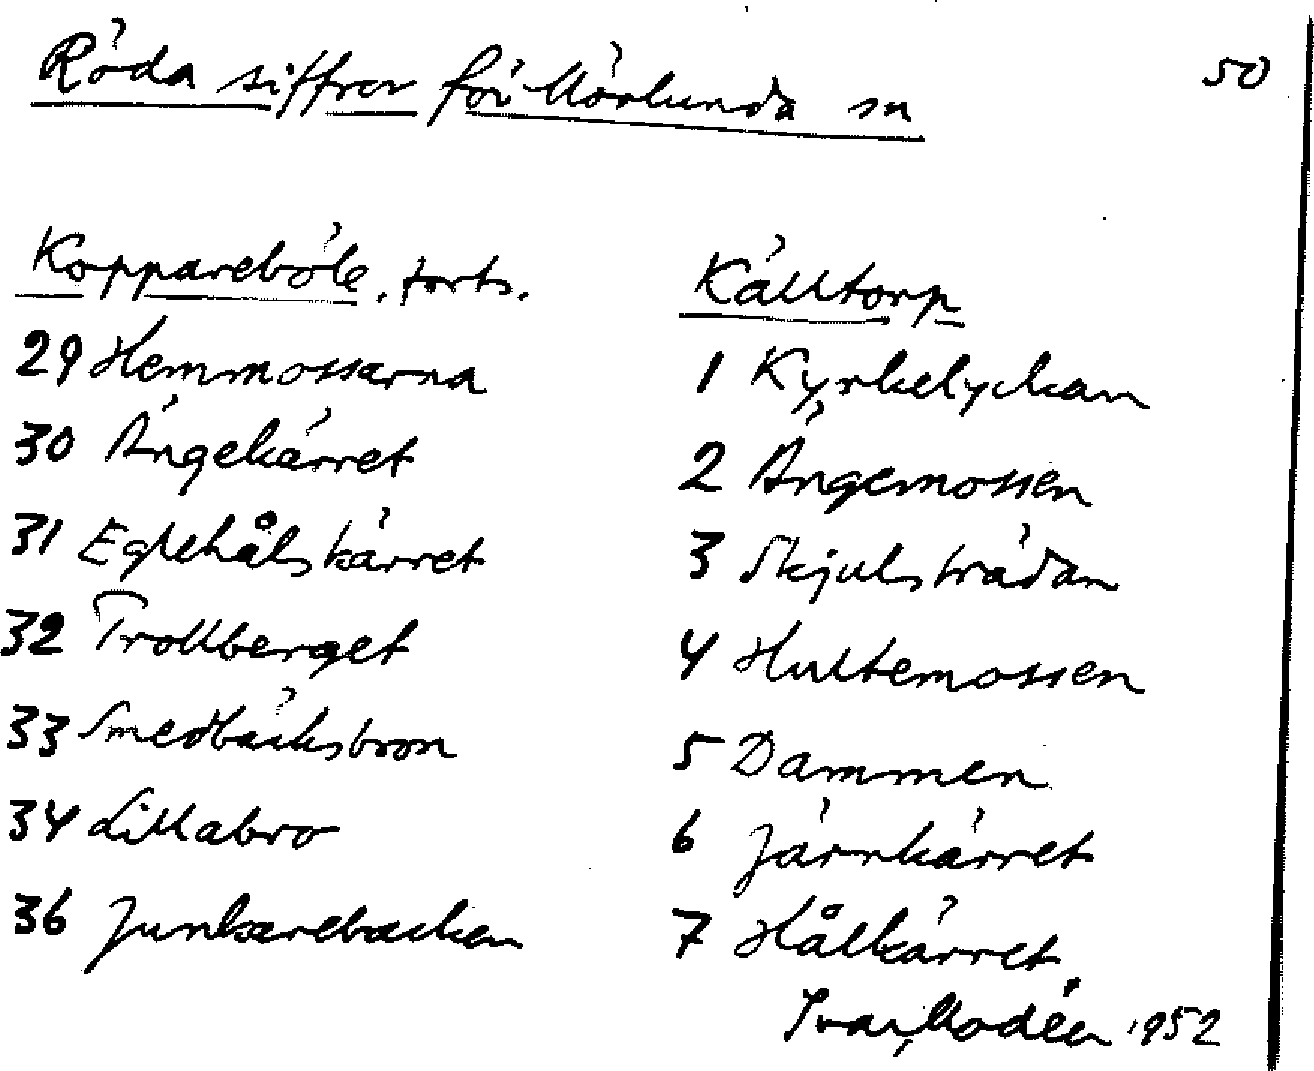 Röda siffror för Mörlunda sn
50
Koppareböle, forts.
29 Hemmossarna
30 Ängekärret
31 Eglehålskärret
32 Trollberget
33 Smedbäcksbron
34 Lillabro
36 Junkarebacken
Källtorp
1 Kyrkelyckan
2 Ängemossen
3 Skjulsträdan
4 Hultemossen
5 Dammen
6 Järnkärret
7 Hålkärret
Ivar Modéer 1952